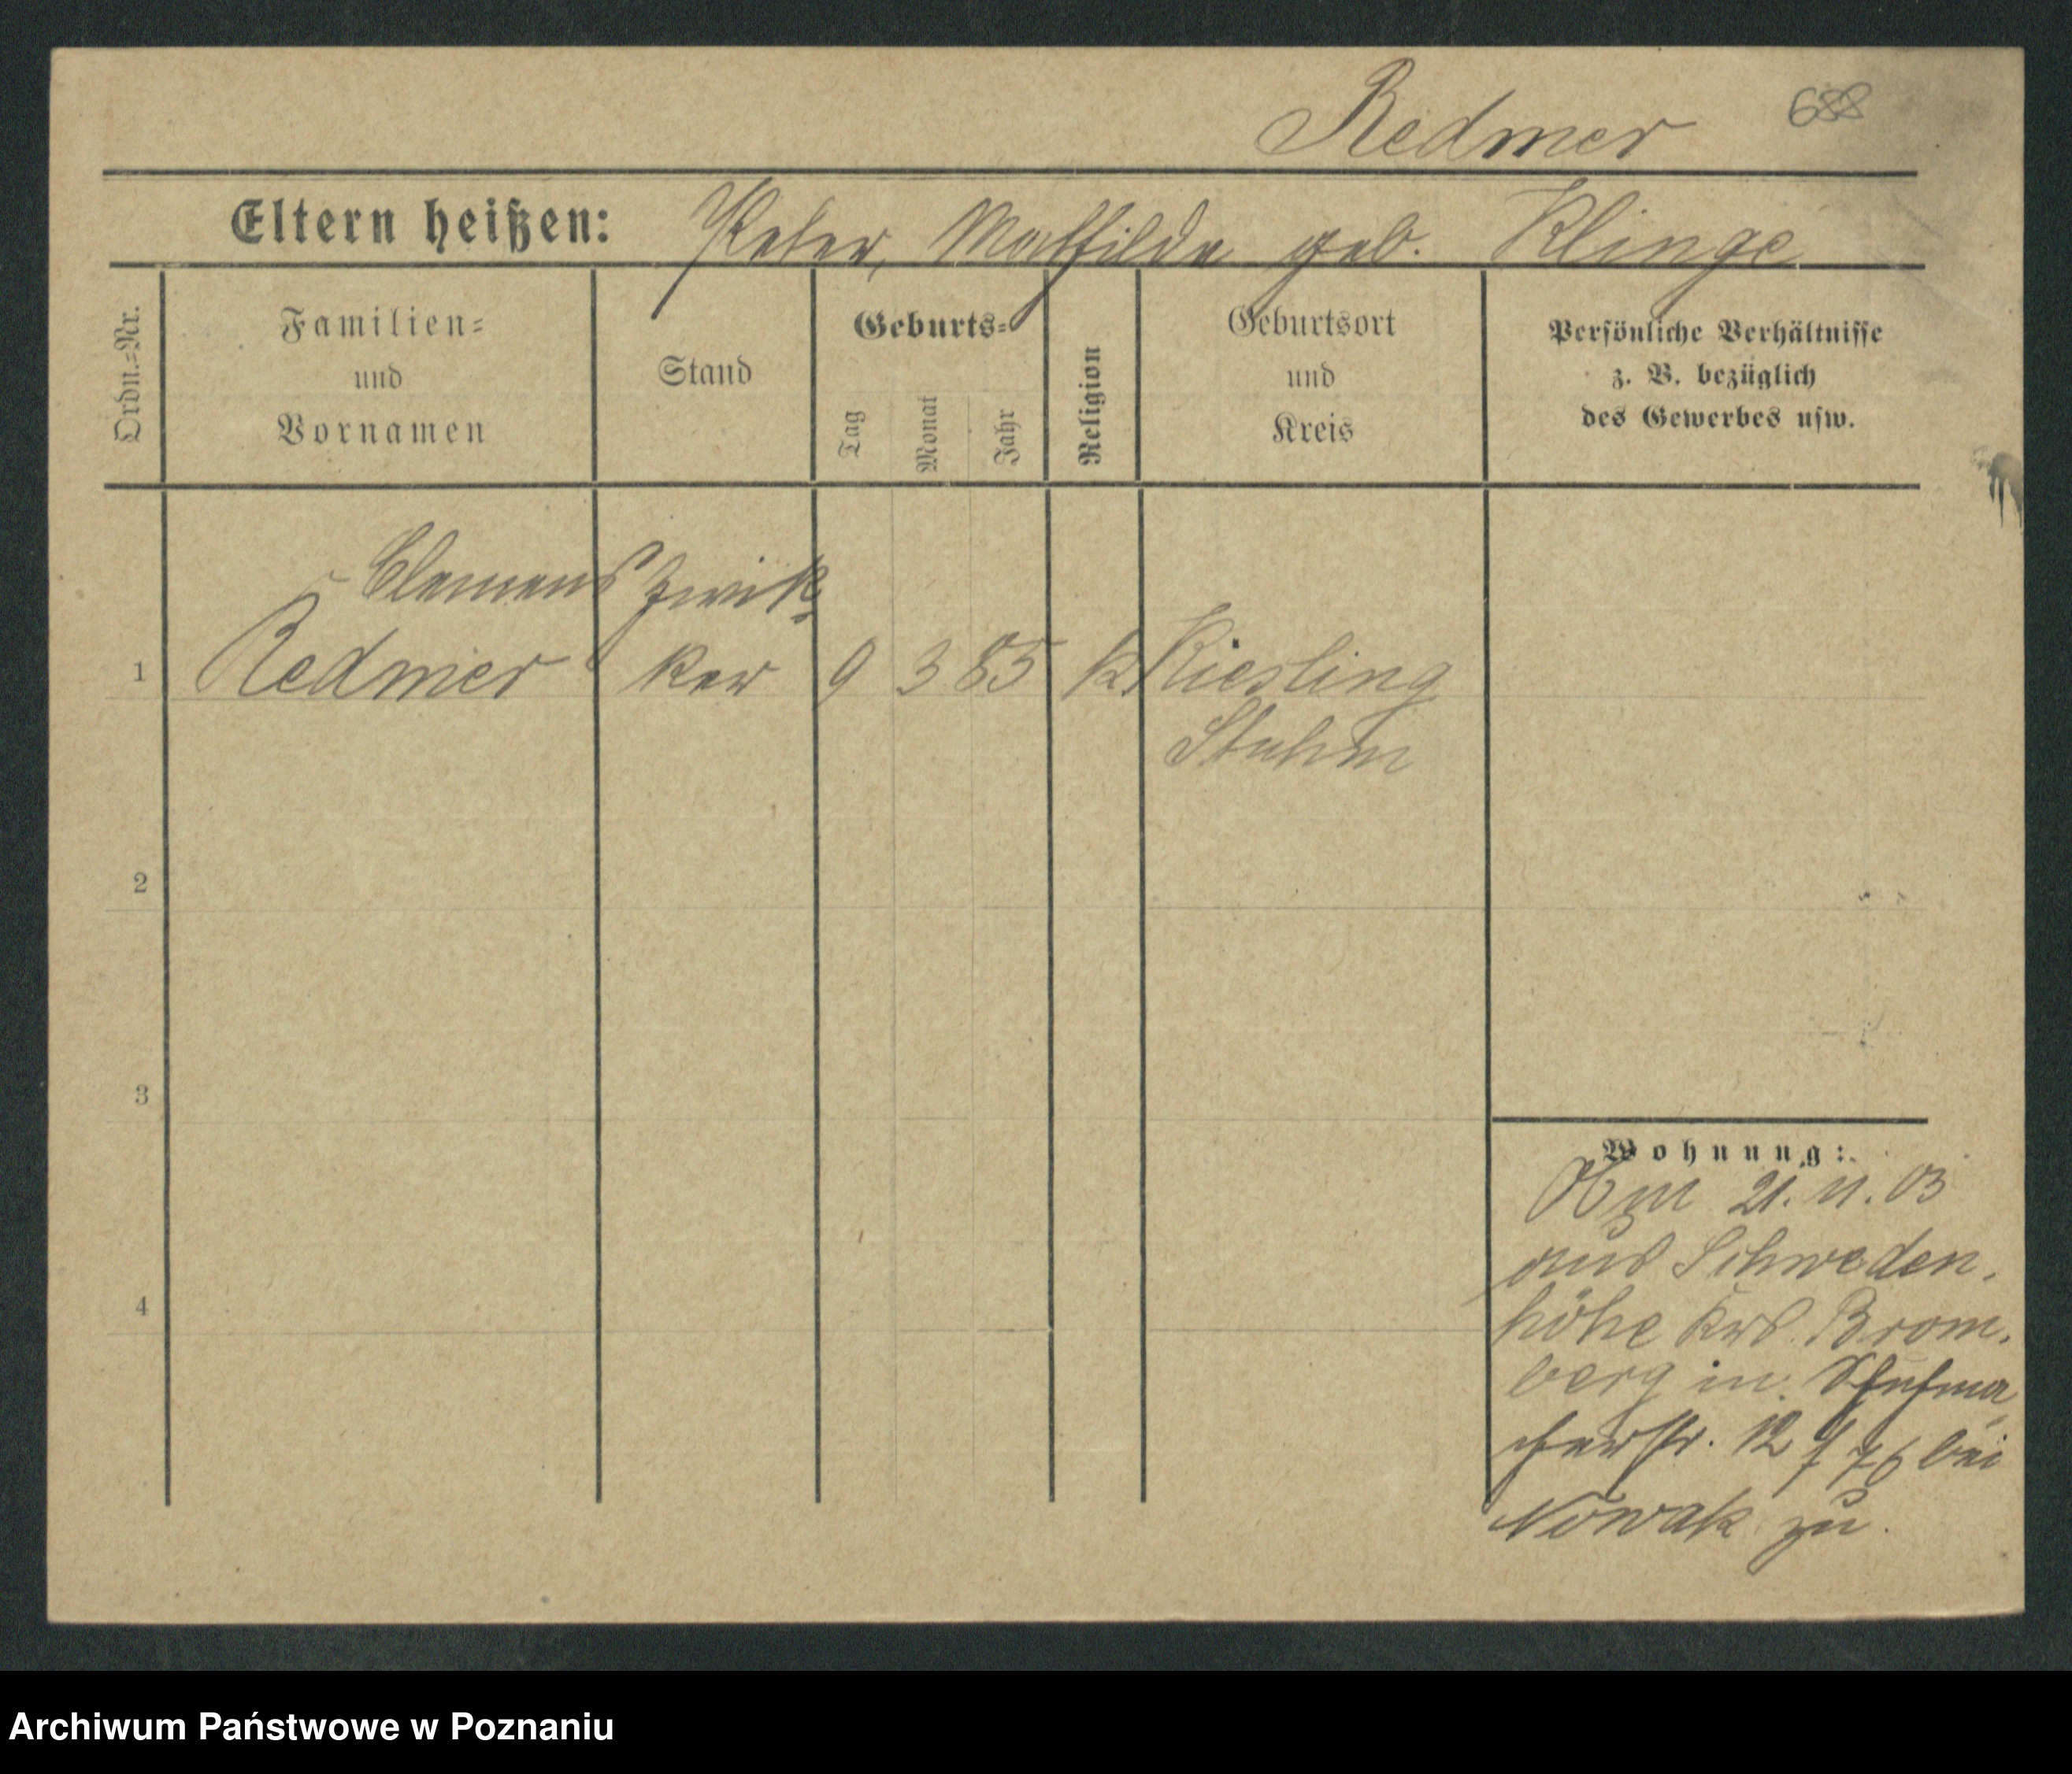 Redmer 688
Eltern heißen: Peter, Mathilde geb. Klinge
Ordn.=Nr.
Familien=
und
Vornamen
Stand
Geburts=
Tag
Monat
Jahr
Religion
Geburtsort
und
Kreis
Persönliche Verhältnisse
z. B. bezüglich
des Gewerbes usw.
Clemens Zwik-
1 Redmer ker 9 3 85 k. Riesling
Stuhm
2
3
4
Wohnung:
21. 11. 03
aus Schweden.
höhe Krs. Brom.
berg in Schuhma
cherstr. 12 bei
Nowak zu.
Archiwum Państwowe w Poznaniu